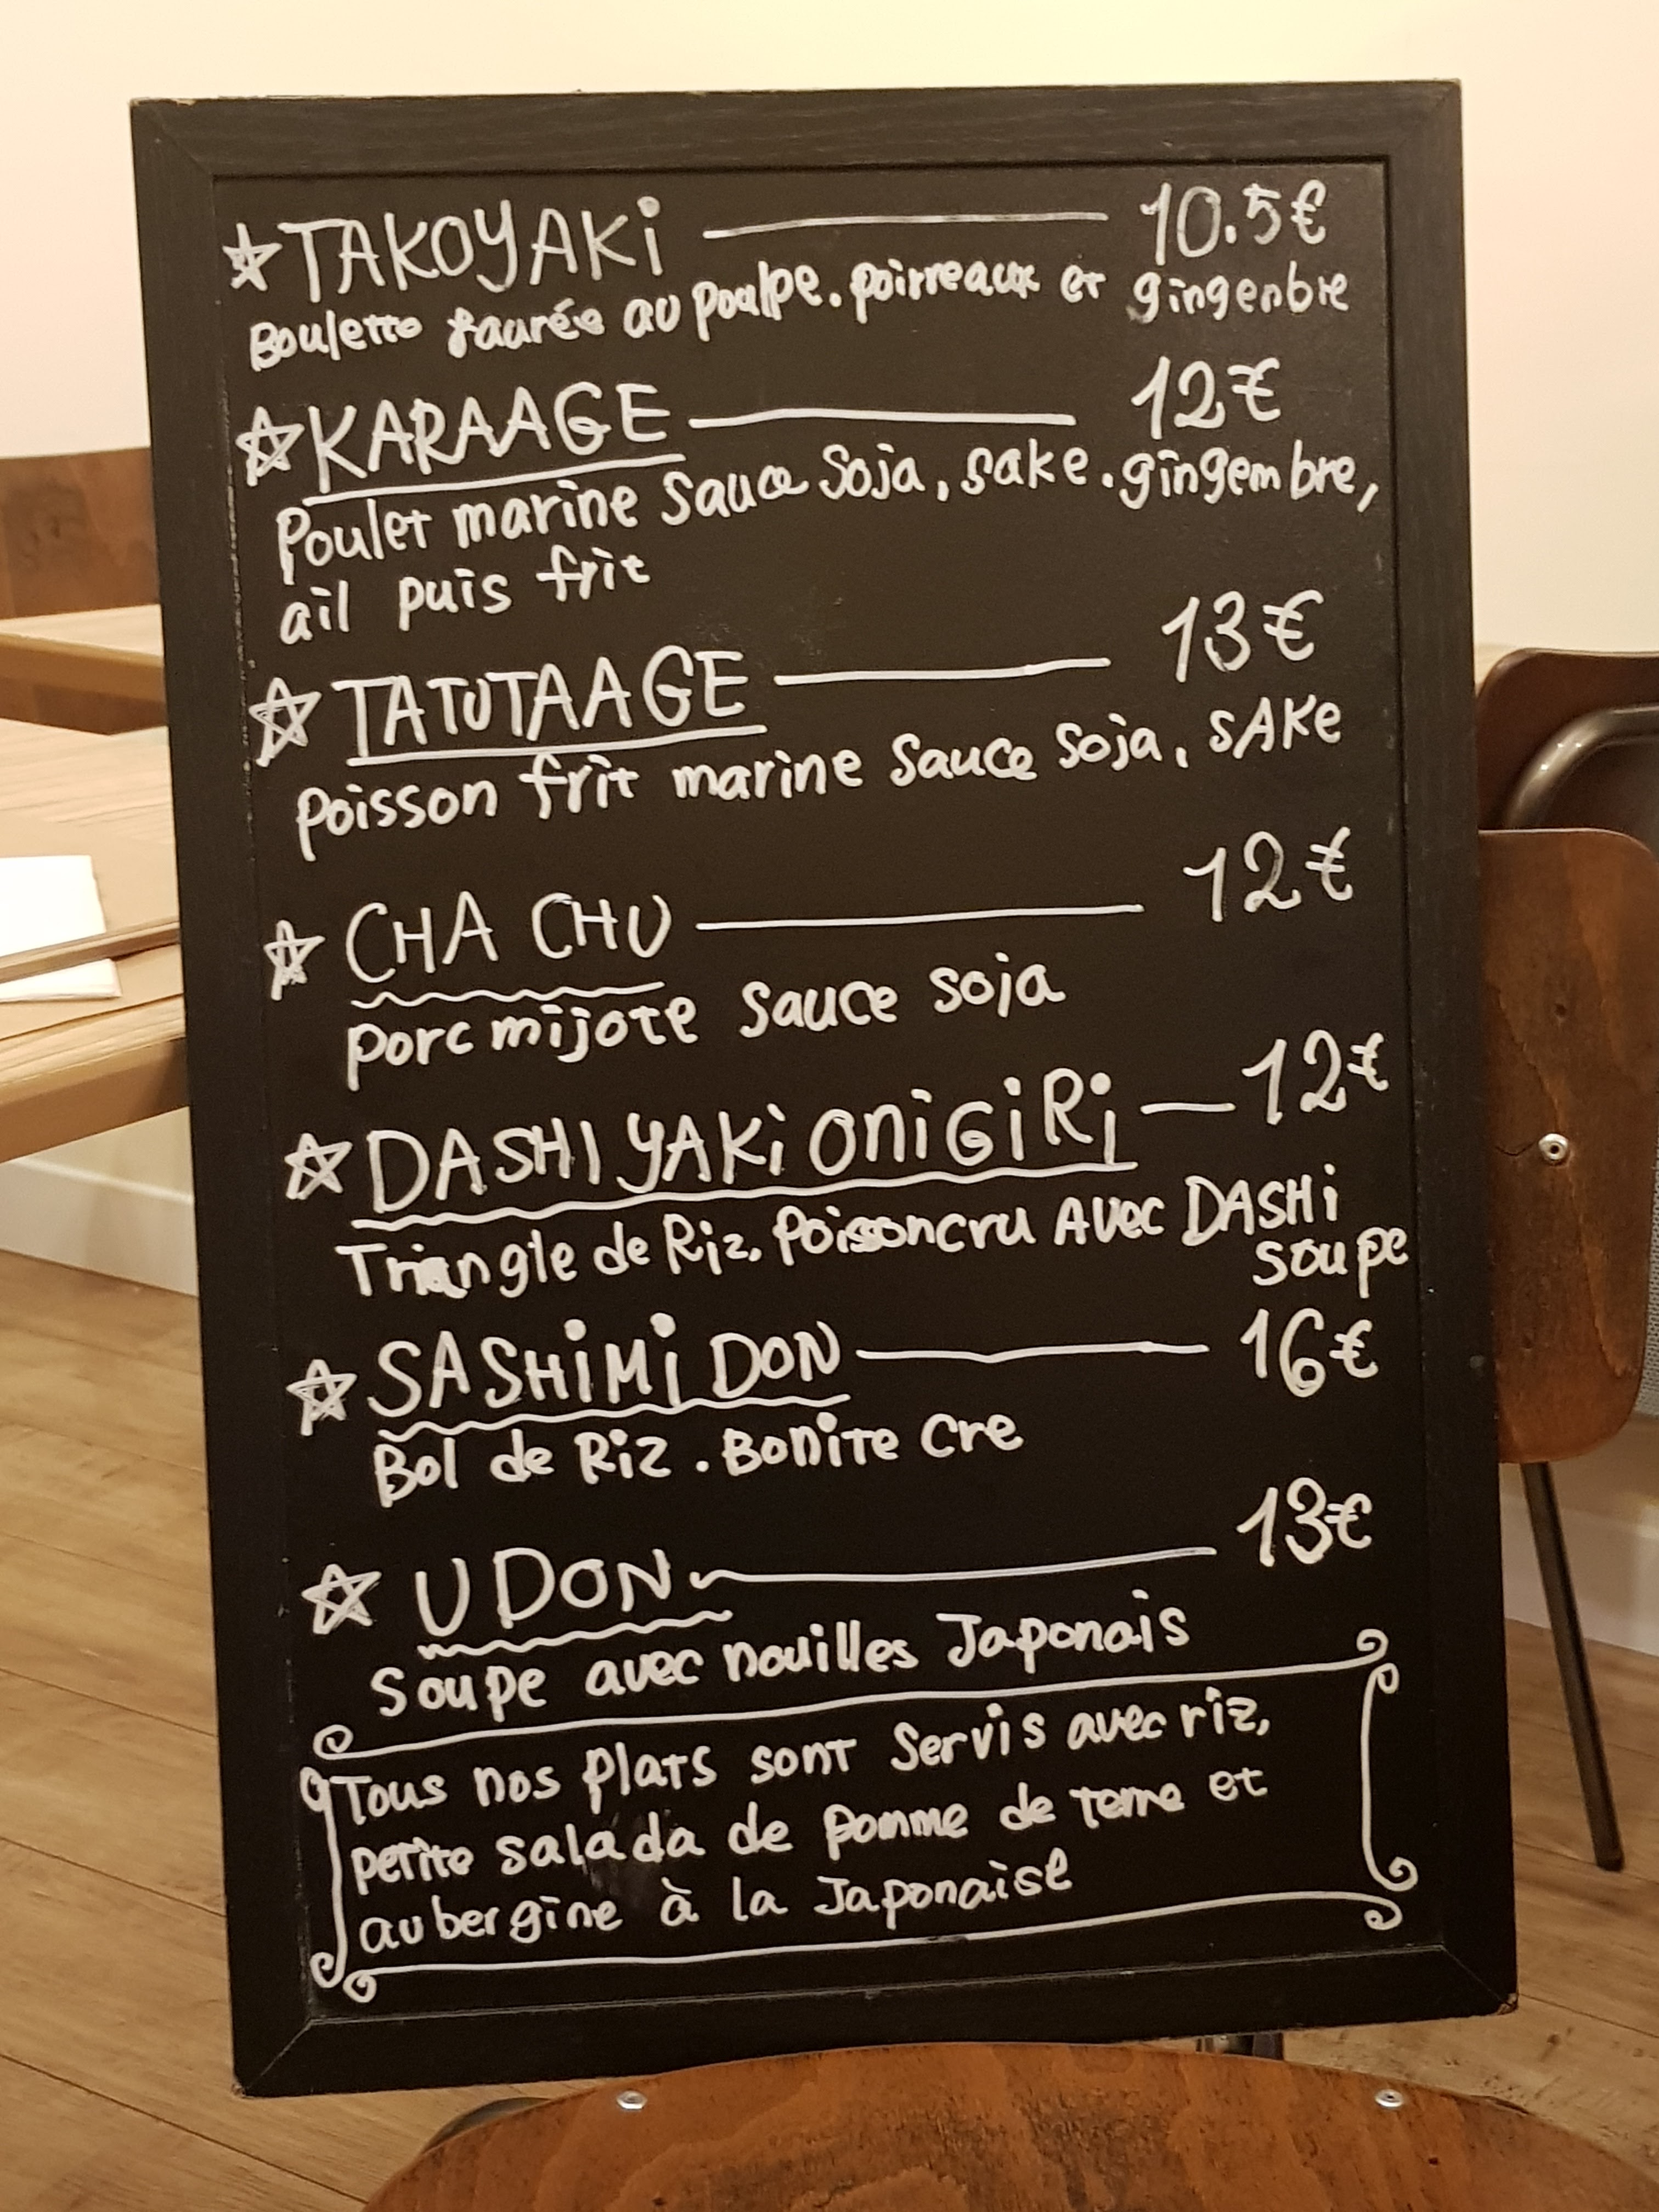 TAKOYAKi 10.5€
Boulette faurée au poulpe. poirreaux et gingenbre
KARAAGE 12€
Poulet marine sauce Soja, sake. gingembre,
ail puis frit
TATUTAAGE 13€
Poisson frit marine sauce soja, SAKe
CHA CHU 12€
porc mijote sauce soja
DASHI YAKi ONiGiRi 12€
Triangle de Riz, Poisson cru Avec DASHi
soupe
SASHiMi DON 16€
Bol de Riz. Bonite cre
UDON 13€
Soupe avec nouilles Japonais
Tous nos plats sont servis avec riz,
petite salada de pomme de terre et
aubergine à la Japonaise